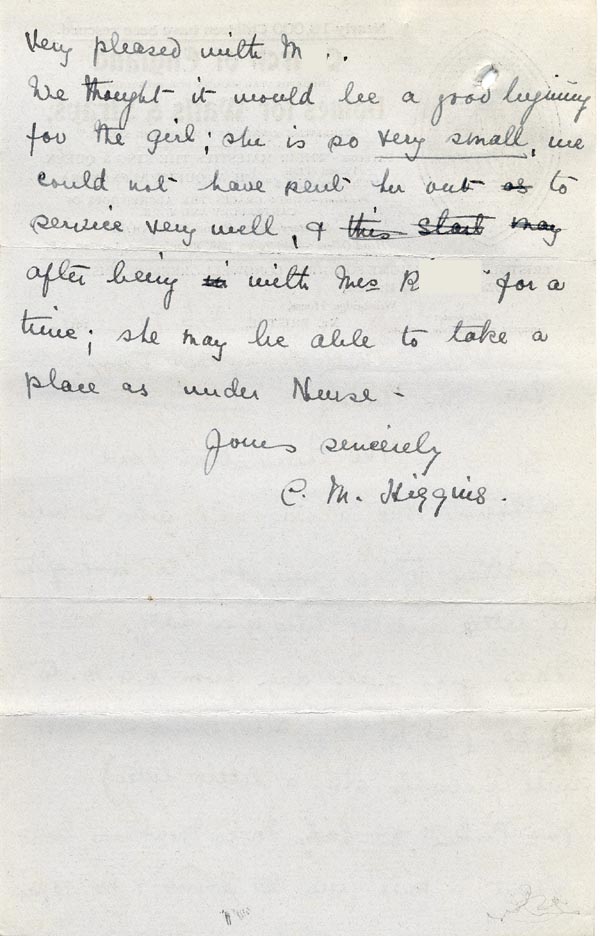 very pleased with M . .
We thought it would be a good begining
for the girl; she is so very small, we
could not have sent her out as to
service very well, & this start may
after being in with Mrs R for a
time; she may be able to take a
place as under Nurse -
Yours sincerely
C. M. Higgins.